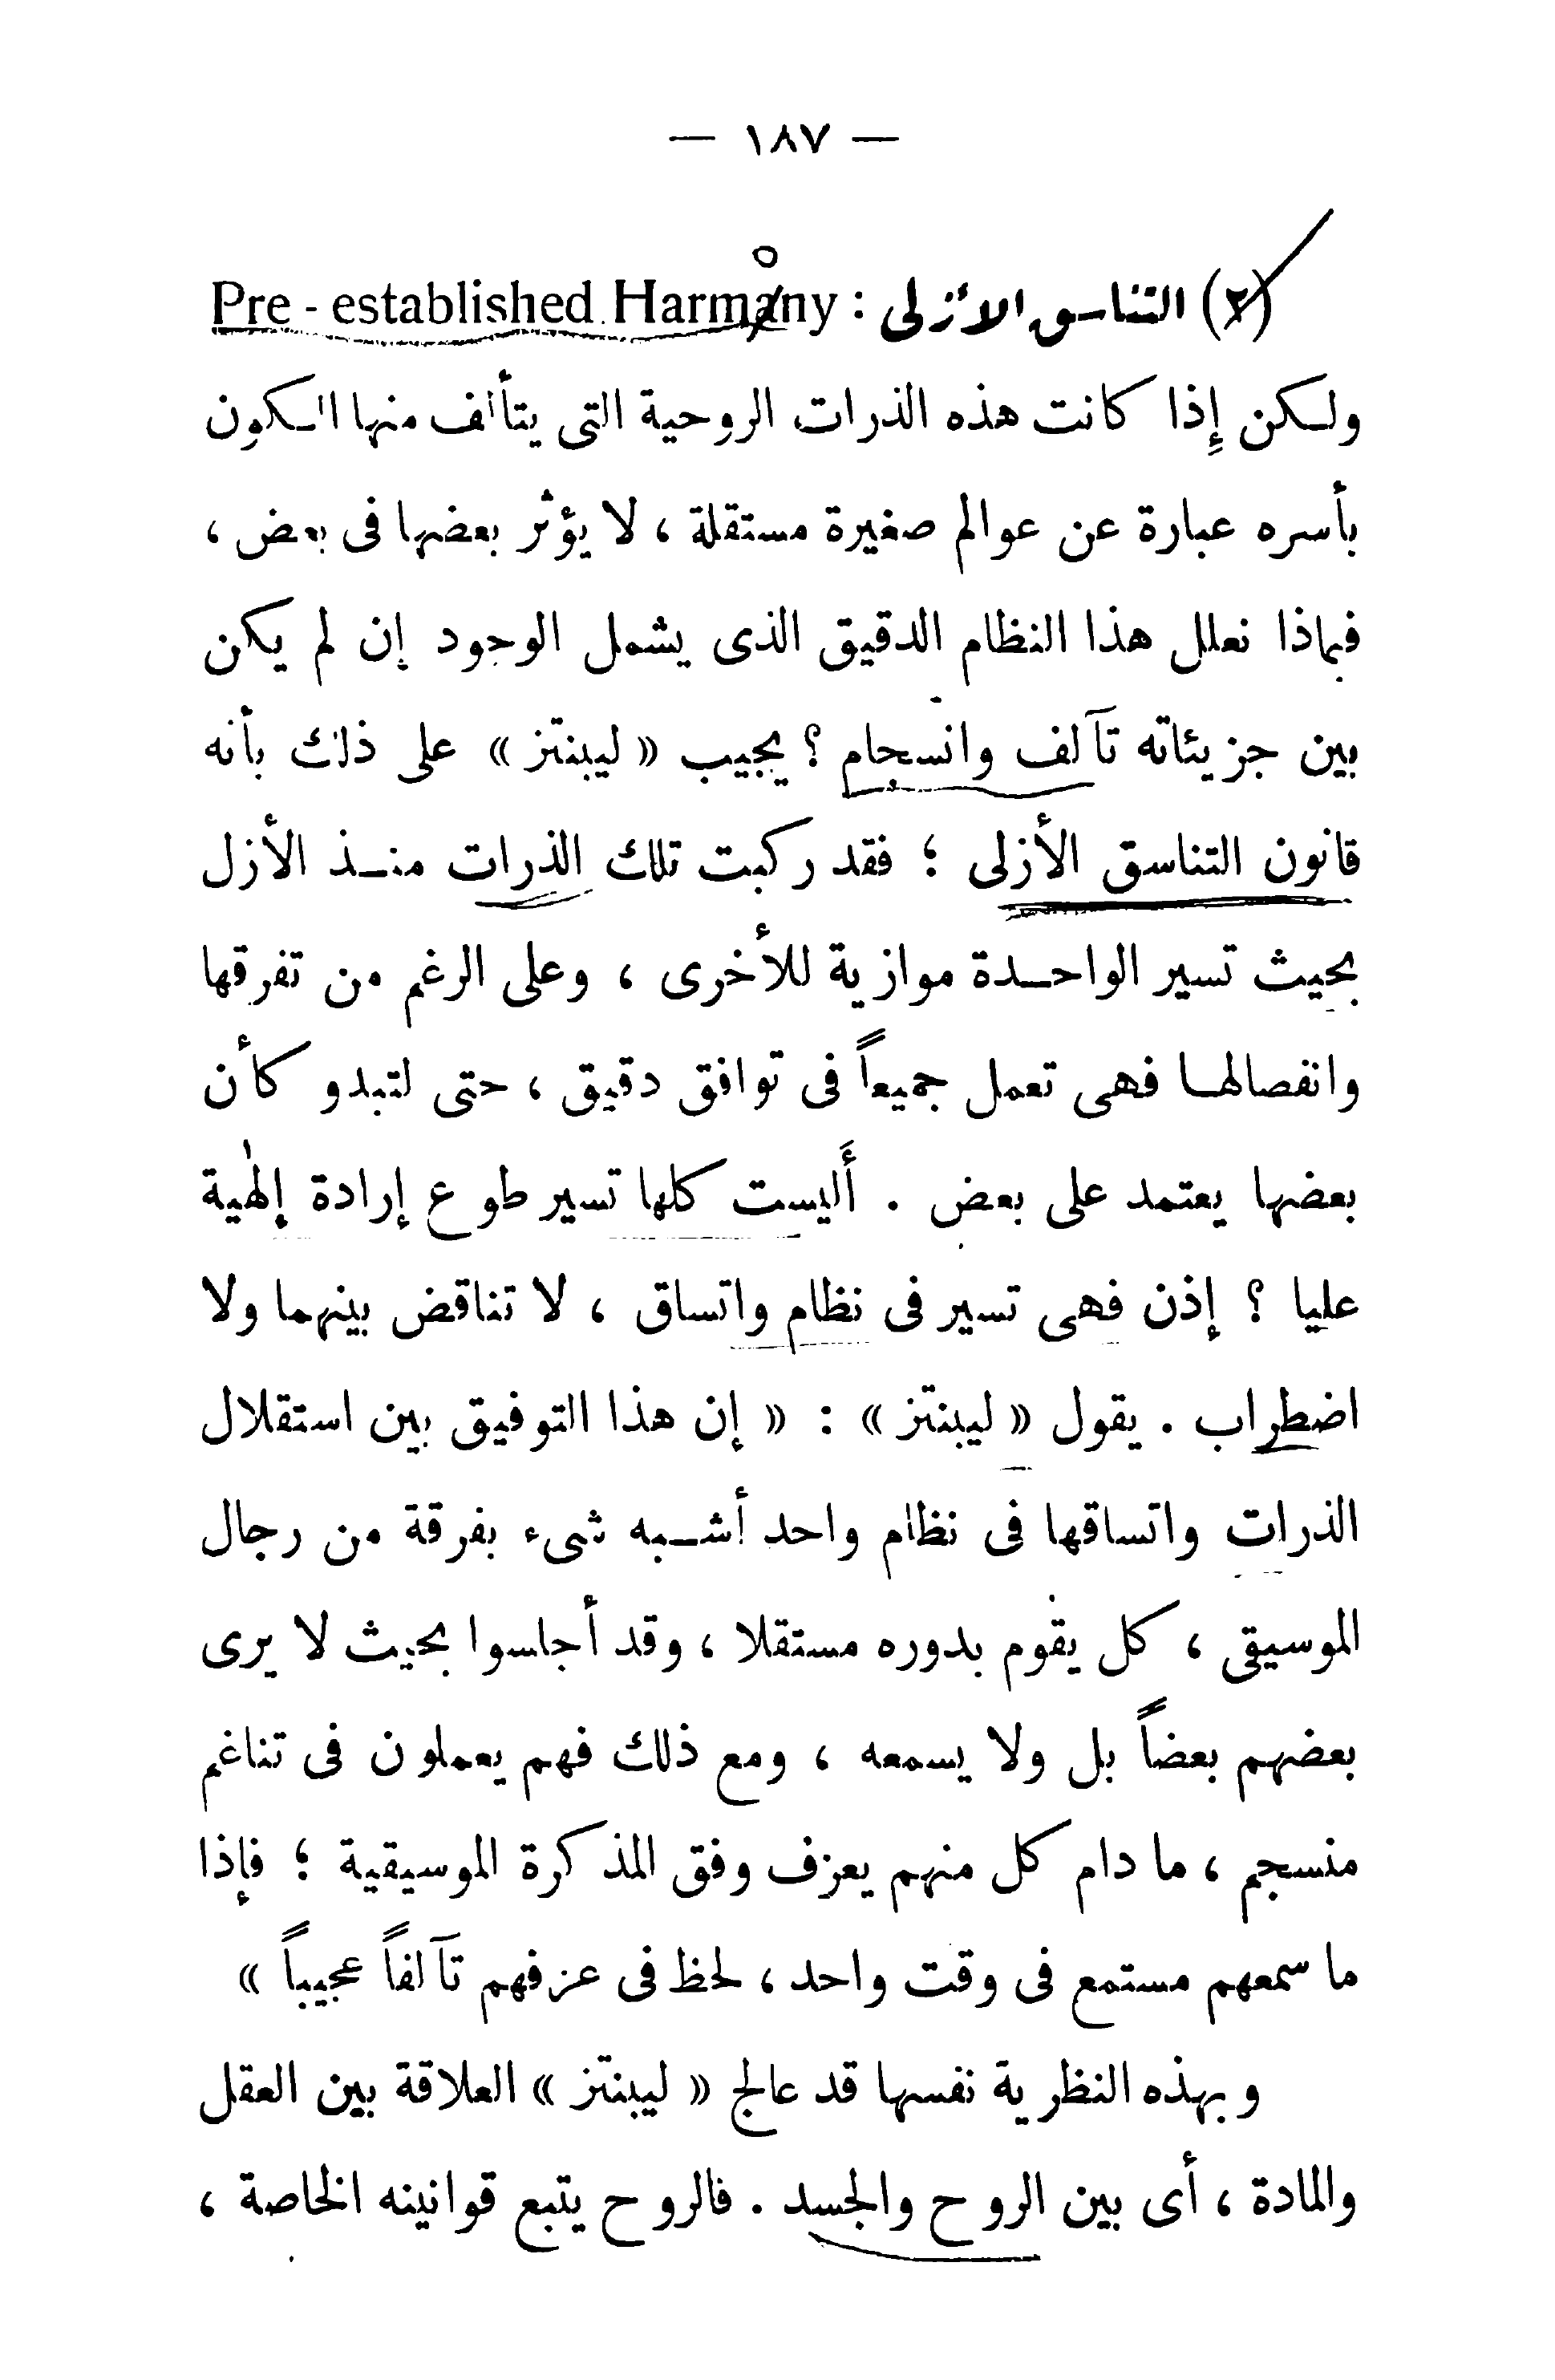 — ١٨٧ —
(٢) التناسق الأزلى : Pre - established Harmany
ولكن إذا كانت هذه الذرات الروحية التى يتألف منها الكون
بأسره عبارة عن عوالم صغيرة مستقلة ، لا يؤثر بعضها فى بعض ،
فبماذا نعلل هذا النظام الدقيق الذى يشمل الوجود إن لم يكن
بين جزيئاته تآلف وانسجام ؟ يجيب « ليبنتز » على ذلك بأنه
قانون التناسق الأزلى ؛ فقد ركبت تلك الذرات منذ الأزل
بحيث تسير الواحدة موازية للأخرى ، وعلى الرغم من تفرقها
وانفصالها فهى تعمل جميعاً فى توافق دقيق ، حتى لتبدو كأن
بعضها يعتمد على بعض . أَليست كلها تسير طوع إرادة إلٰهية
عليا ؟ إذن فهى تسير فى نظام واتساق ، لا تناقض بينهما ولا
اضطراب . يقول « ليبنتز » : « إن هذا التوفيق بين استقلال
الذرات واتساقها فى نظام واحد أشبه شىء بفرقة من رجال
الموسيقى ، كل يقوم بدوره مستقلا ، وقد أجلسوا بحيث لا يرى
بعضهم بعضاً بل ولا يسمعه ، ومع ذلك فهم يعملون فى تناغم
منسجم ، ما دام كل منهم يعزف وفق المذكرة الموسيقية ؛ فإذا
ما سمعهم مستمع فى وقت واحد ، لحظ فى عزفهم تآلفاً عجيباً »
وبهذه النظرية نفسها قد عالج « ليبنتز » العلاقة بين العقل
والمادة ، أى بين الروح والجسد . فالروح يتبع قوانينه الخاصة ،